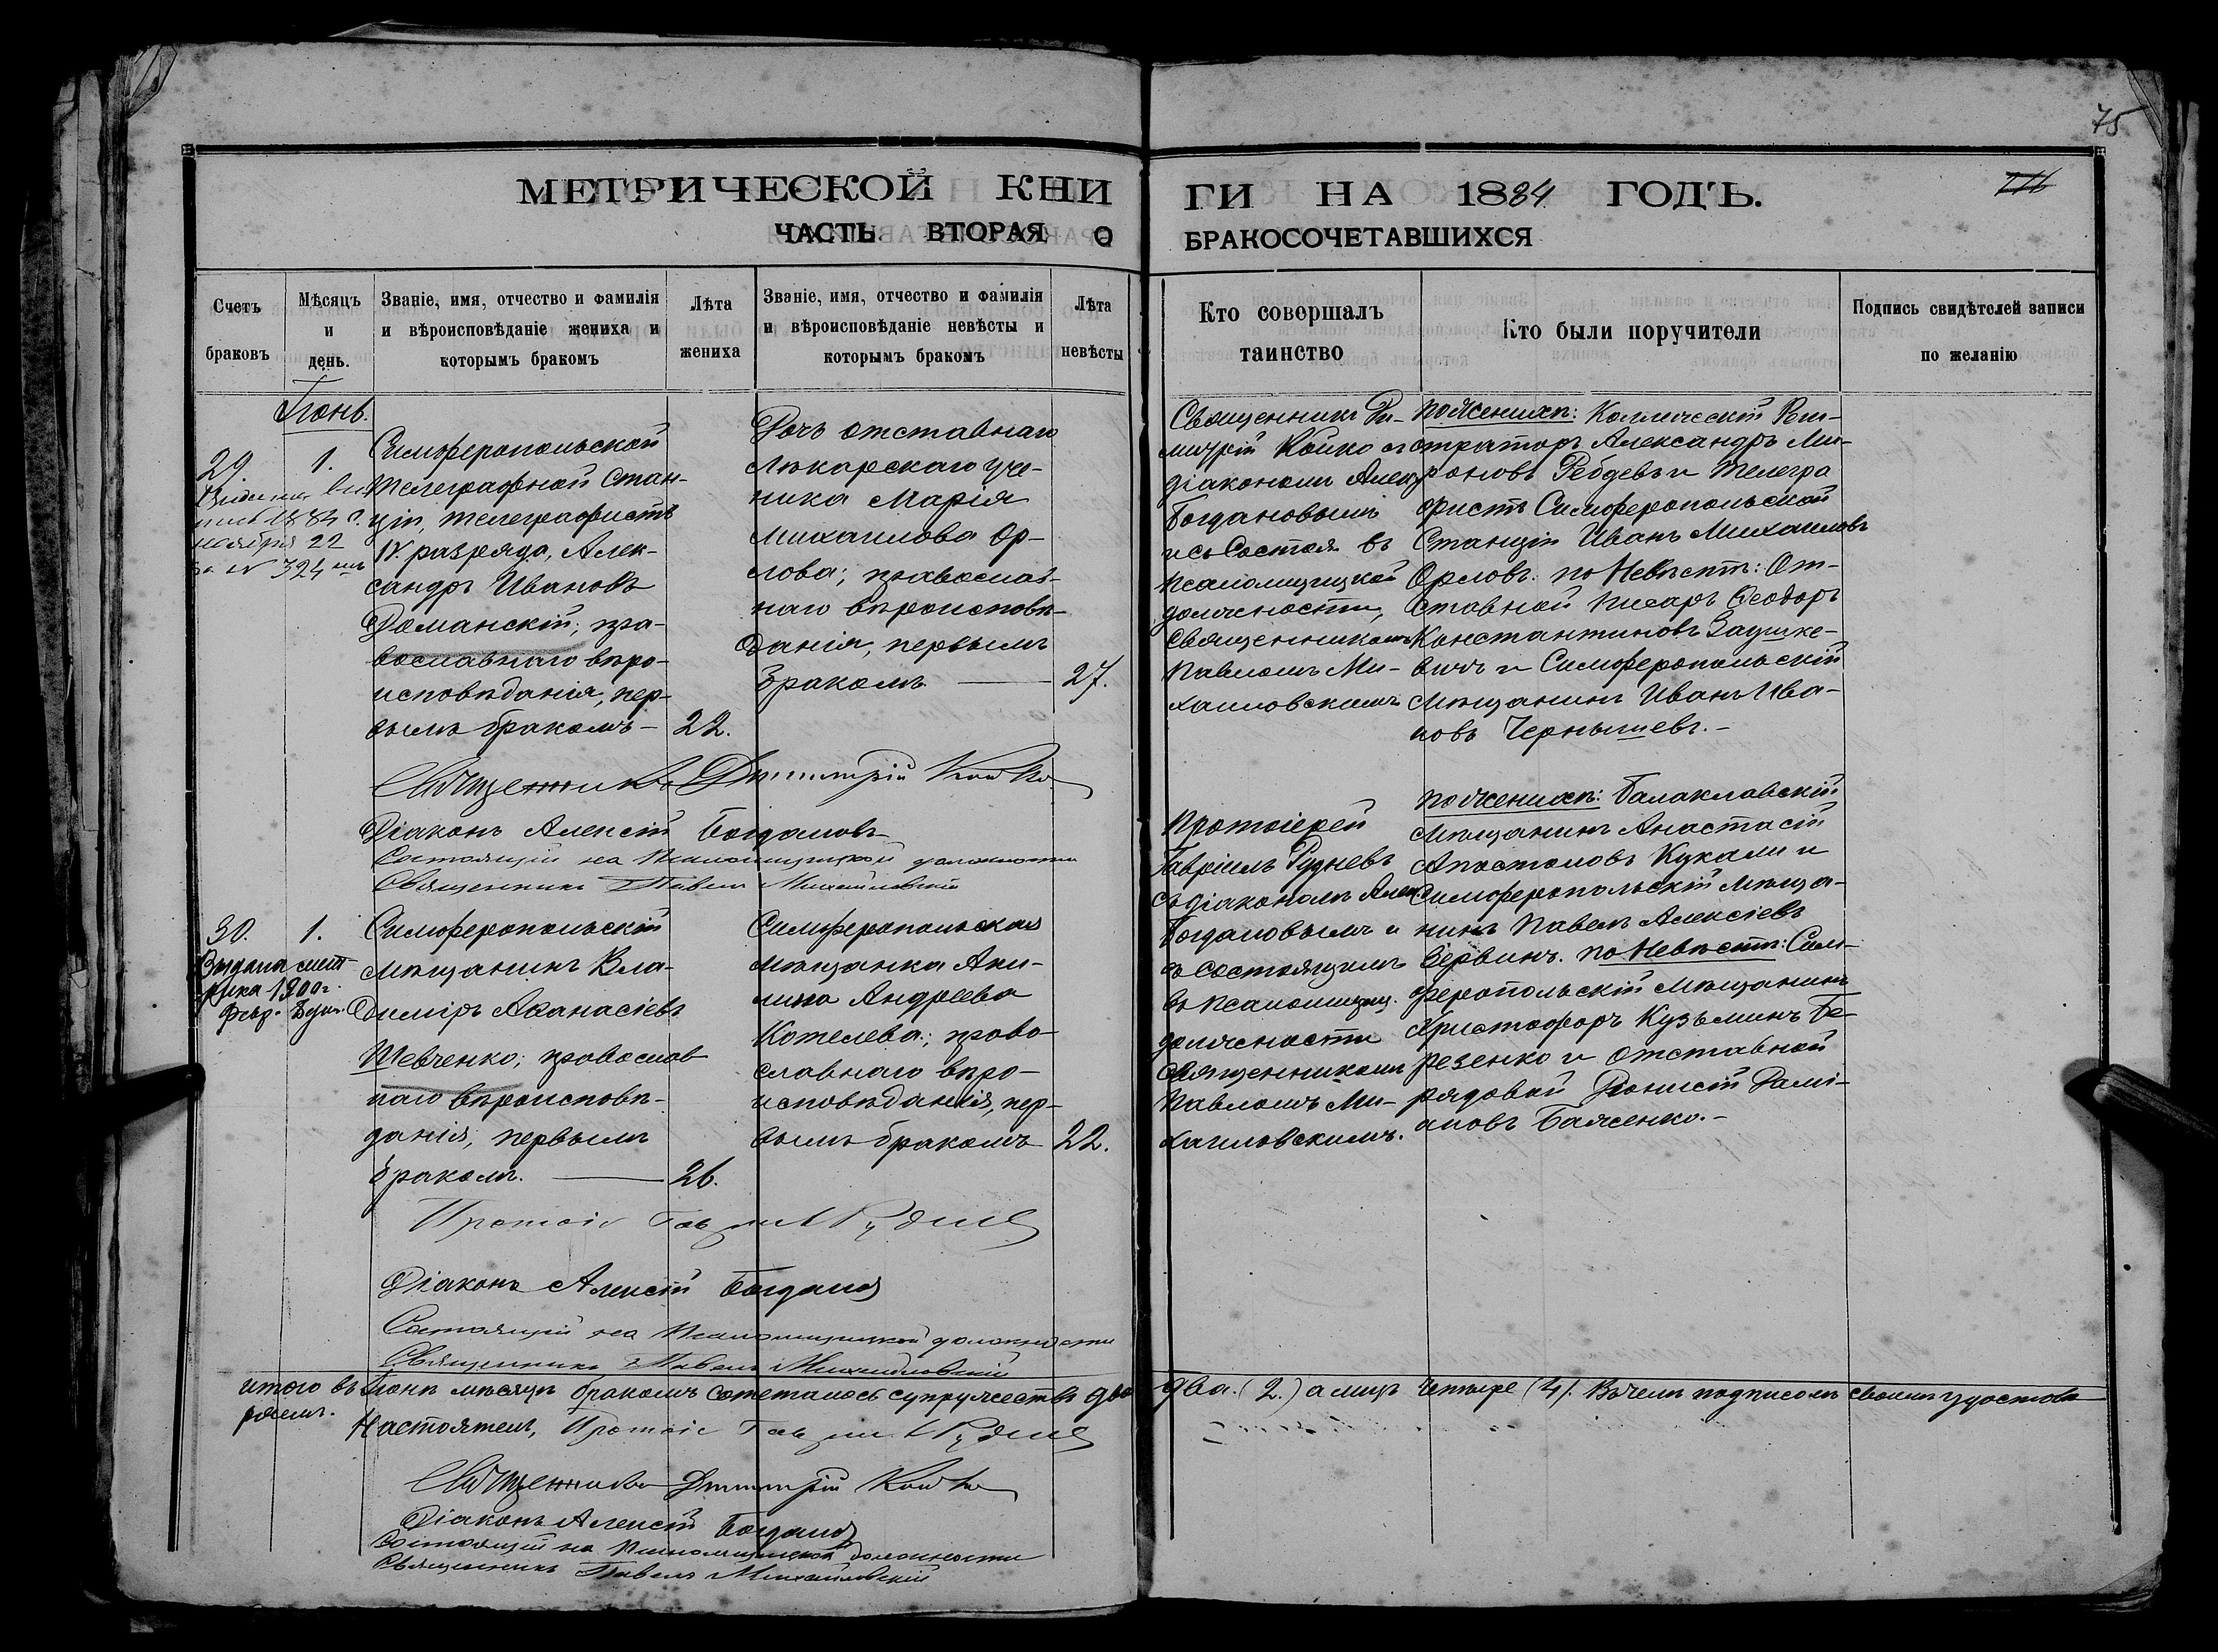 75
МЕТРИЧЕСКОЙ КНИ
ГИ НА 1884 ГОДЪ.
ЧАСТЬ ВТОРАЯ О
БРАКОСОЧЕТАВШИХСЯ
Счетъ
браковъ
Мѣсяцъ
и
день.
Званіе, имя, отчество и фамилія
и вѣроисповѣданіе жениха и
которымъ бракомъ
Лѣта
жениха
Званіе, имя, отчество и фамилія
и вѣроисповѣданіе невѣсты и
которымъ бракомъ
Лѣта
невѣсты
Кто совершалъ
таинство
Кто были поручители
Подпись свидѣтелей записи
по желанію
Іюнь.
29.
1.
1884 г.
ноября 22
за № 324
Симферопольской
Телеграфной Стан-
ціи, телеграфистъ
IV. разряда, Алек-
сандръ Ивановъ
Романскій; пра-
вославнаго вѣро-
исповѣданія, пер-
вымъ бракомъ —
22.
Дочь отставнаго
Лѣкарскаго уче-
ника Марія
Михаилова Ор-
лова; православ-
наго вѣроисповѣ-
данія, первымъ
бракомъ —
27.
Священникъ Ди-
митрій Койко съ
діакономъ Алек.
Богдановымъ
и съ Состоя. въ
псаломщицкой
должности,
священникомъ
Павломъ Ми-
хайловскимъ
По женихѣ: Коллежскій Реги-
страторъ Александръ Ми-
роновъ и Телегра
фистъ Симферопольской
Станціи Иванъ Михаиловъ
Орловъ. по Невѣстѣ: От-
ставной писарь Ѳеодоръ
Константиновъ Заушке-
вичъ и Симферопольскій
Мѣщанинъ Иванъ Ива-
новъ Чернышевъ. -
Священникъ Димитрій Койко
Діаконъ Алексій Богдановъ
Состоящій на Псаломщицкой должности
Священникъ Павелъ Михайловскій
30.
1.
Выдана мет
рика 1900 г.
Февр.
Симферопольскій
мѣщанинъ Вла-
димиръ Аѳанасіевъ
Шевченко; православ
наго вѣроисповѣ-
данія, первымъ
бракомъ. —
26.
Симферопольская
мѣщанка Аки-
лина Андреева
Котелева; право-
славнаго вѣро-
исповѣданія, пер-
вымъ бракомъ
22.
Протоіерей
Гавріилъ Рудневъ
съ діакономъ Алек.
Богдановымъ и
съ состоящимъ
въ псаломщиц.
должности
священникомъ
Павломъ Ми-
хайловскимъ.
По женихѣ: Балаклавскій
Мѣщанинъ Анастасій
Апостоловъ Кукали и
Симферопольскій мѣща-
нинъ Павелъ Алексіевъ
Зервинъ. по Невѣстѣ: Сим-
феропольскій Мѣщанинъ
Христофоръ Кузьминъ Бе-
резенко и отставной
рядовой Діонисій Дамі-
ановъ Баженко. -
Протоіе Гавріилъ Рудневъ
Діаконъ Алексій Богдановъ
Состоящій на Псаломщицкой должности
Священникъ Павелъ Михайловскій
итого въ Іюнѣ мѣсяцѣ бракомъ сочеталось супружествъ два
два. (2.) а лицъ четыре (4). В чемъ подписомъ своимъ удостовѣ
ряемъ.
Настоятель, Протоіе Гавріилъ Рудневъ
Священникъ Димитрій Койко
Діаконъ Алексій Богдановъ
Состоящій на Псаломщицкой должности
Священникъ Павелъ Михайловскій